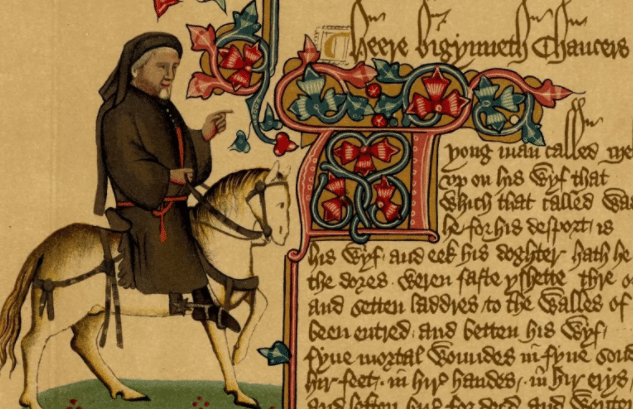 Heere bigynneth Chaucers
A yong man called Me
vp on his wyf that
Which that called was
he for his desport is
his wyf and eek his doghter hath he
the dores weren faste yshette Thre o
and setten laddres to the walles of
been entred and betten his wyf
fyue mortal woundes in fyue sond
hir feet in hir handes in hir erys
and leften hir for deed and wenten